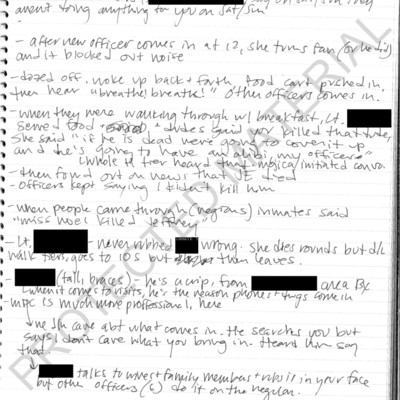 aren't doing anything to you on sat/sun"
- after new officer comes in at 12, she turns fan (or he did)
and it blocked out noise
- dozed off. woke up back + forth, food cart pushed in.
then hear "breathe! breathe!" Other officers comes in.
- when they were walking through w/ breakfast, Lt.
served food + dudes said you killed that dude,
She said "if he is dead, we're going to cover it up
and he's going to have an alibi my officers"
↳ whole tier heard that. initiated convo
- then found out on news that JE died
- officers kept saying I didnt kill him
- when people came through (negrons) inmates said
"miss noel killed Jeffrey"
- Lt. - never rubbed wrong. She does rounds but d/l
walk tiers, goes to 10s but then leaves.
- (tall, braces). he's a crip, from area Bx
when it comes to visits, he's the reason phones + drugs come in
MDC is much more professional, here
↓
he d/n care abt what comes in. He searches you but
says I don't care what you bring in. Heard him say
that
↓
talks to wives + family members + rubs it in your face
but other officers do it on the regular.
PROTECTED MATERIAL